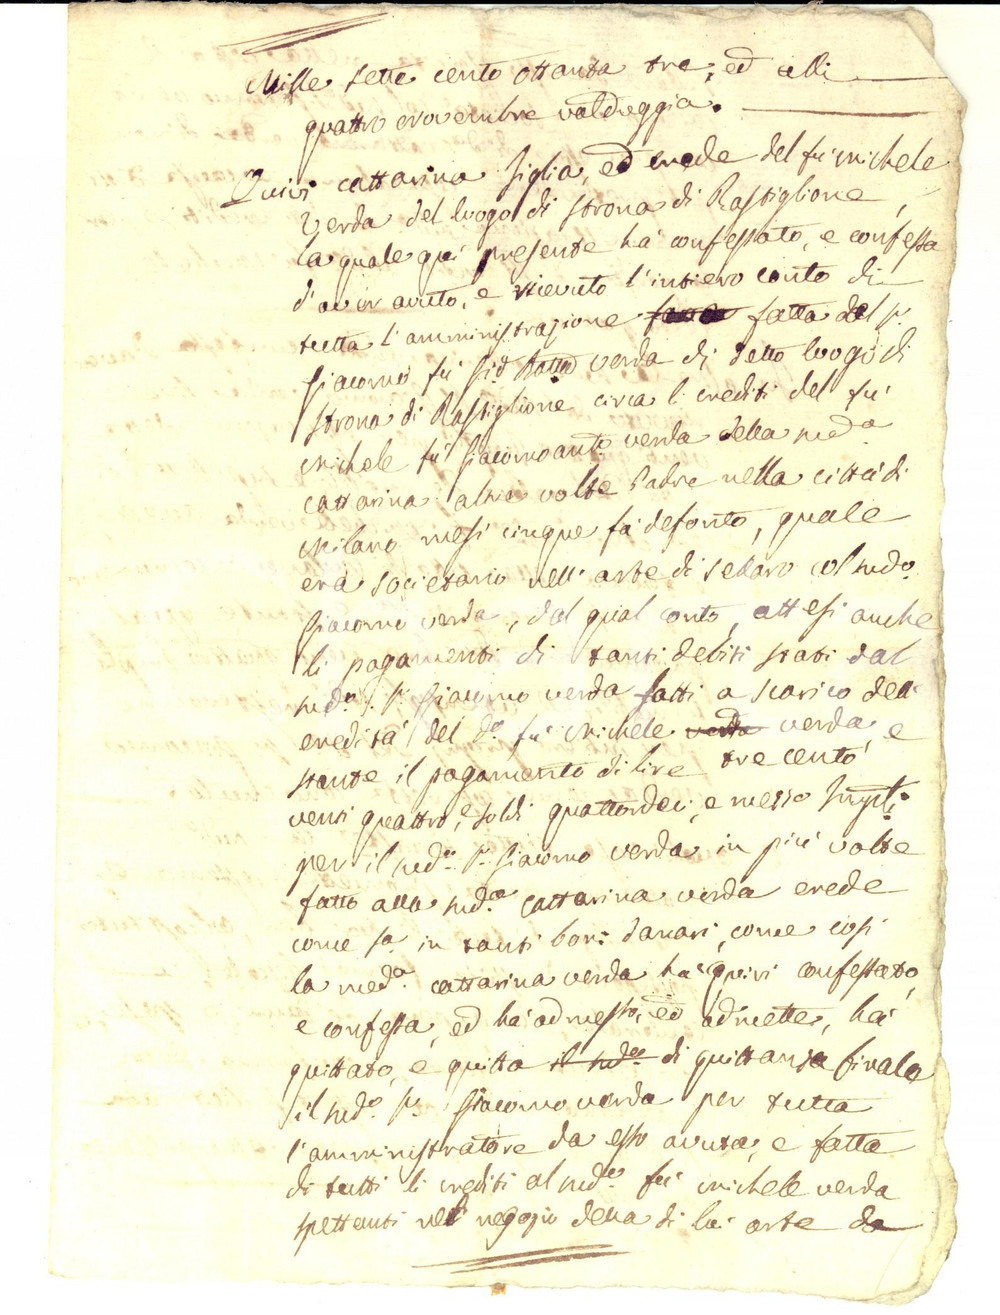 Mille sette cento ottanta tre, ed alli
quattro novembre valduggia.
Quivi cattarina figlia, ed erede del fu michele
Verda del luogo di strona di Rastiglione,
la quale qui presente ha confessato, e confessa
d'aver avuto, e ricevuto l'intiero conto di
tutta l'amministrazione fatta dal sr.
Giacomo fu verda di detto luogo di
strona di Rastiglione circa li crediti del fu
michele fu Giacomoanto verda della meda
cattarina altre volte Padre nella città di
Milano mesi cinque fa defonto, quale
era societario nell'arte di sellaro col sudo.
Giacomo verda, dal qual conto, attesi anche
li pagamenti di tanti debiti stati dal
sudo. sr. Giacomo verda fatti a scarico dell'
eredità del do. fu michele verda verda, e
stante il pagamento di lire tre cento
venti quattro, e soldi quattordeci, e mezzo
per il sudo. sr. Giacomo verda in più volte
fatto alla suda. cattarina verda erede
come sa. in tanti boni danari, come così
la meda. cattarina verda ha quivi confessato,
e confessa, ed ha admesso, ed admette, ha
quittato, e quitta il sudo. di quittanza finale
il sudo. sr. Giacomo verda per tutta
l'amministratore da esso avuta, e fatta
di tutti li crediti al sudo. fu michele verda
spettanti nel negozio della di lui arte da